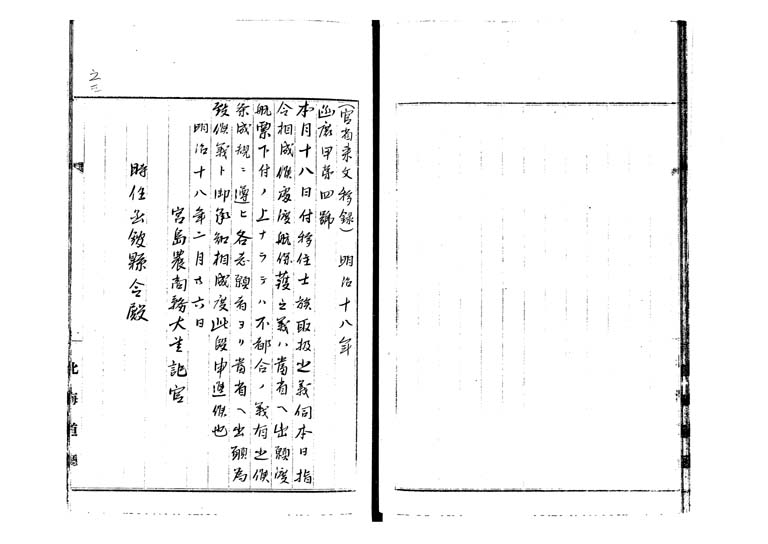 (官省来文移録) 明治十八年
函底甲第四號
本月十八日付移住士族取扱之義伺本日指
令相成候處渡航保護之義ハ当省ヘ出願渡
航票下付ノ上ナラテハ不都合ノ義有之候
条成規ニ遵ヒ各志願者ヨリ当省ヘ出願為
致候義ト御承知相成度此段申進候也
明治十八年二月廿六日
宮島農商務大書記官
時任函館縣令殿
之三
北海道廳